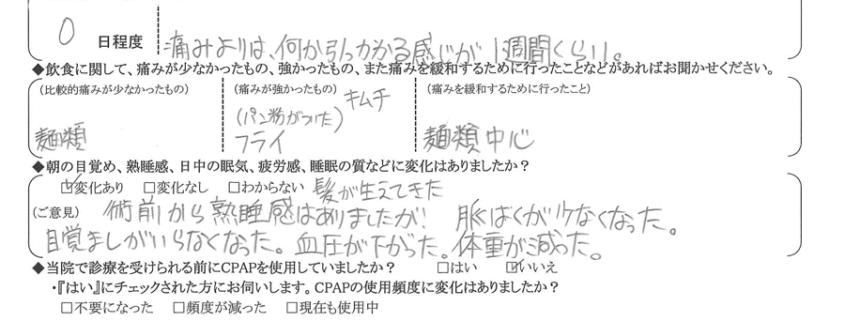 0 日程度 痛みよりは、何か引っかかる感じが1週間くらい。
◆飲食に関して、痛みが少なかったもの、強かったもの、また痛みを緩和するために行ったことなどがあればお聞かせください。
(比較的痛みが少なかったもの) (痛みが強かったもの) キムチ (痛みを緩和するために行ったこと)
(パン粉がついた)
麺類 フライ 麺類中心
◆朝の目覚め、熟睡感、日中の眠気、疲労感、睡眠の質などに変化はありましたか?
☑変化あり □変化なし □わからない 髪が生えてきた
(ご意見) 術前から熟睡感はありましたが! 脈はくがなくなった。
目覚ましがいらなくなった。血圧が下がった。体重が減った。
◆当院で診療を受けられる前にCPAPを使用していましたか? □はい ☑いいえ
・『はい』にチェックされた方にお伺いします。CPAPの使用頻度に変化はありましたか?
□不要になった □頻度が減った □現在も使用中